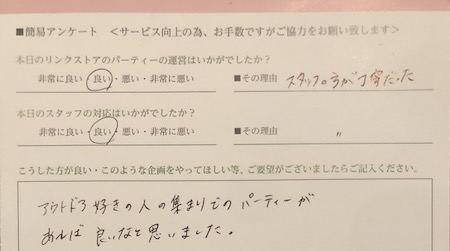 ■簡易アンケート ＜サービス向上の為、お手数ですがご協力をお願い致します＞
本日のリンクストアのパーティーの運営はいかがでしたか？
非常に良い・良い・悪い・非常に悪い ■その理由 スタッフの方が丁寧だった
本日のスタッフの対応はいかがでしたか？
非常に良い・良い・悪い・非常に悪い ■その理由 〃
こうした方が良い・このような企画をやってほしい等、ご要望がございましたらご記入ください。
アウトドア好きの人の集まりでのパーティーが
あれば良いなと思いました。